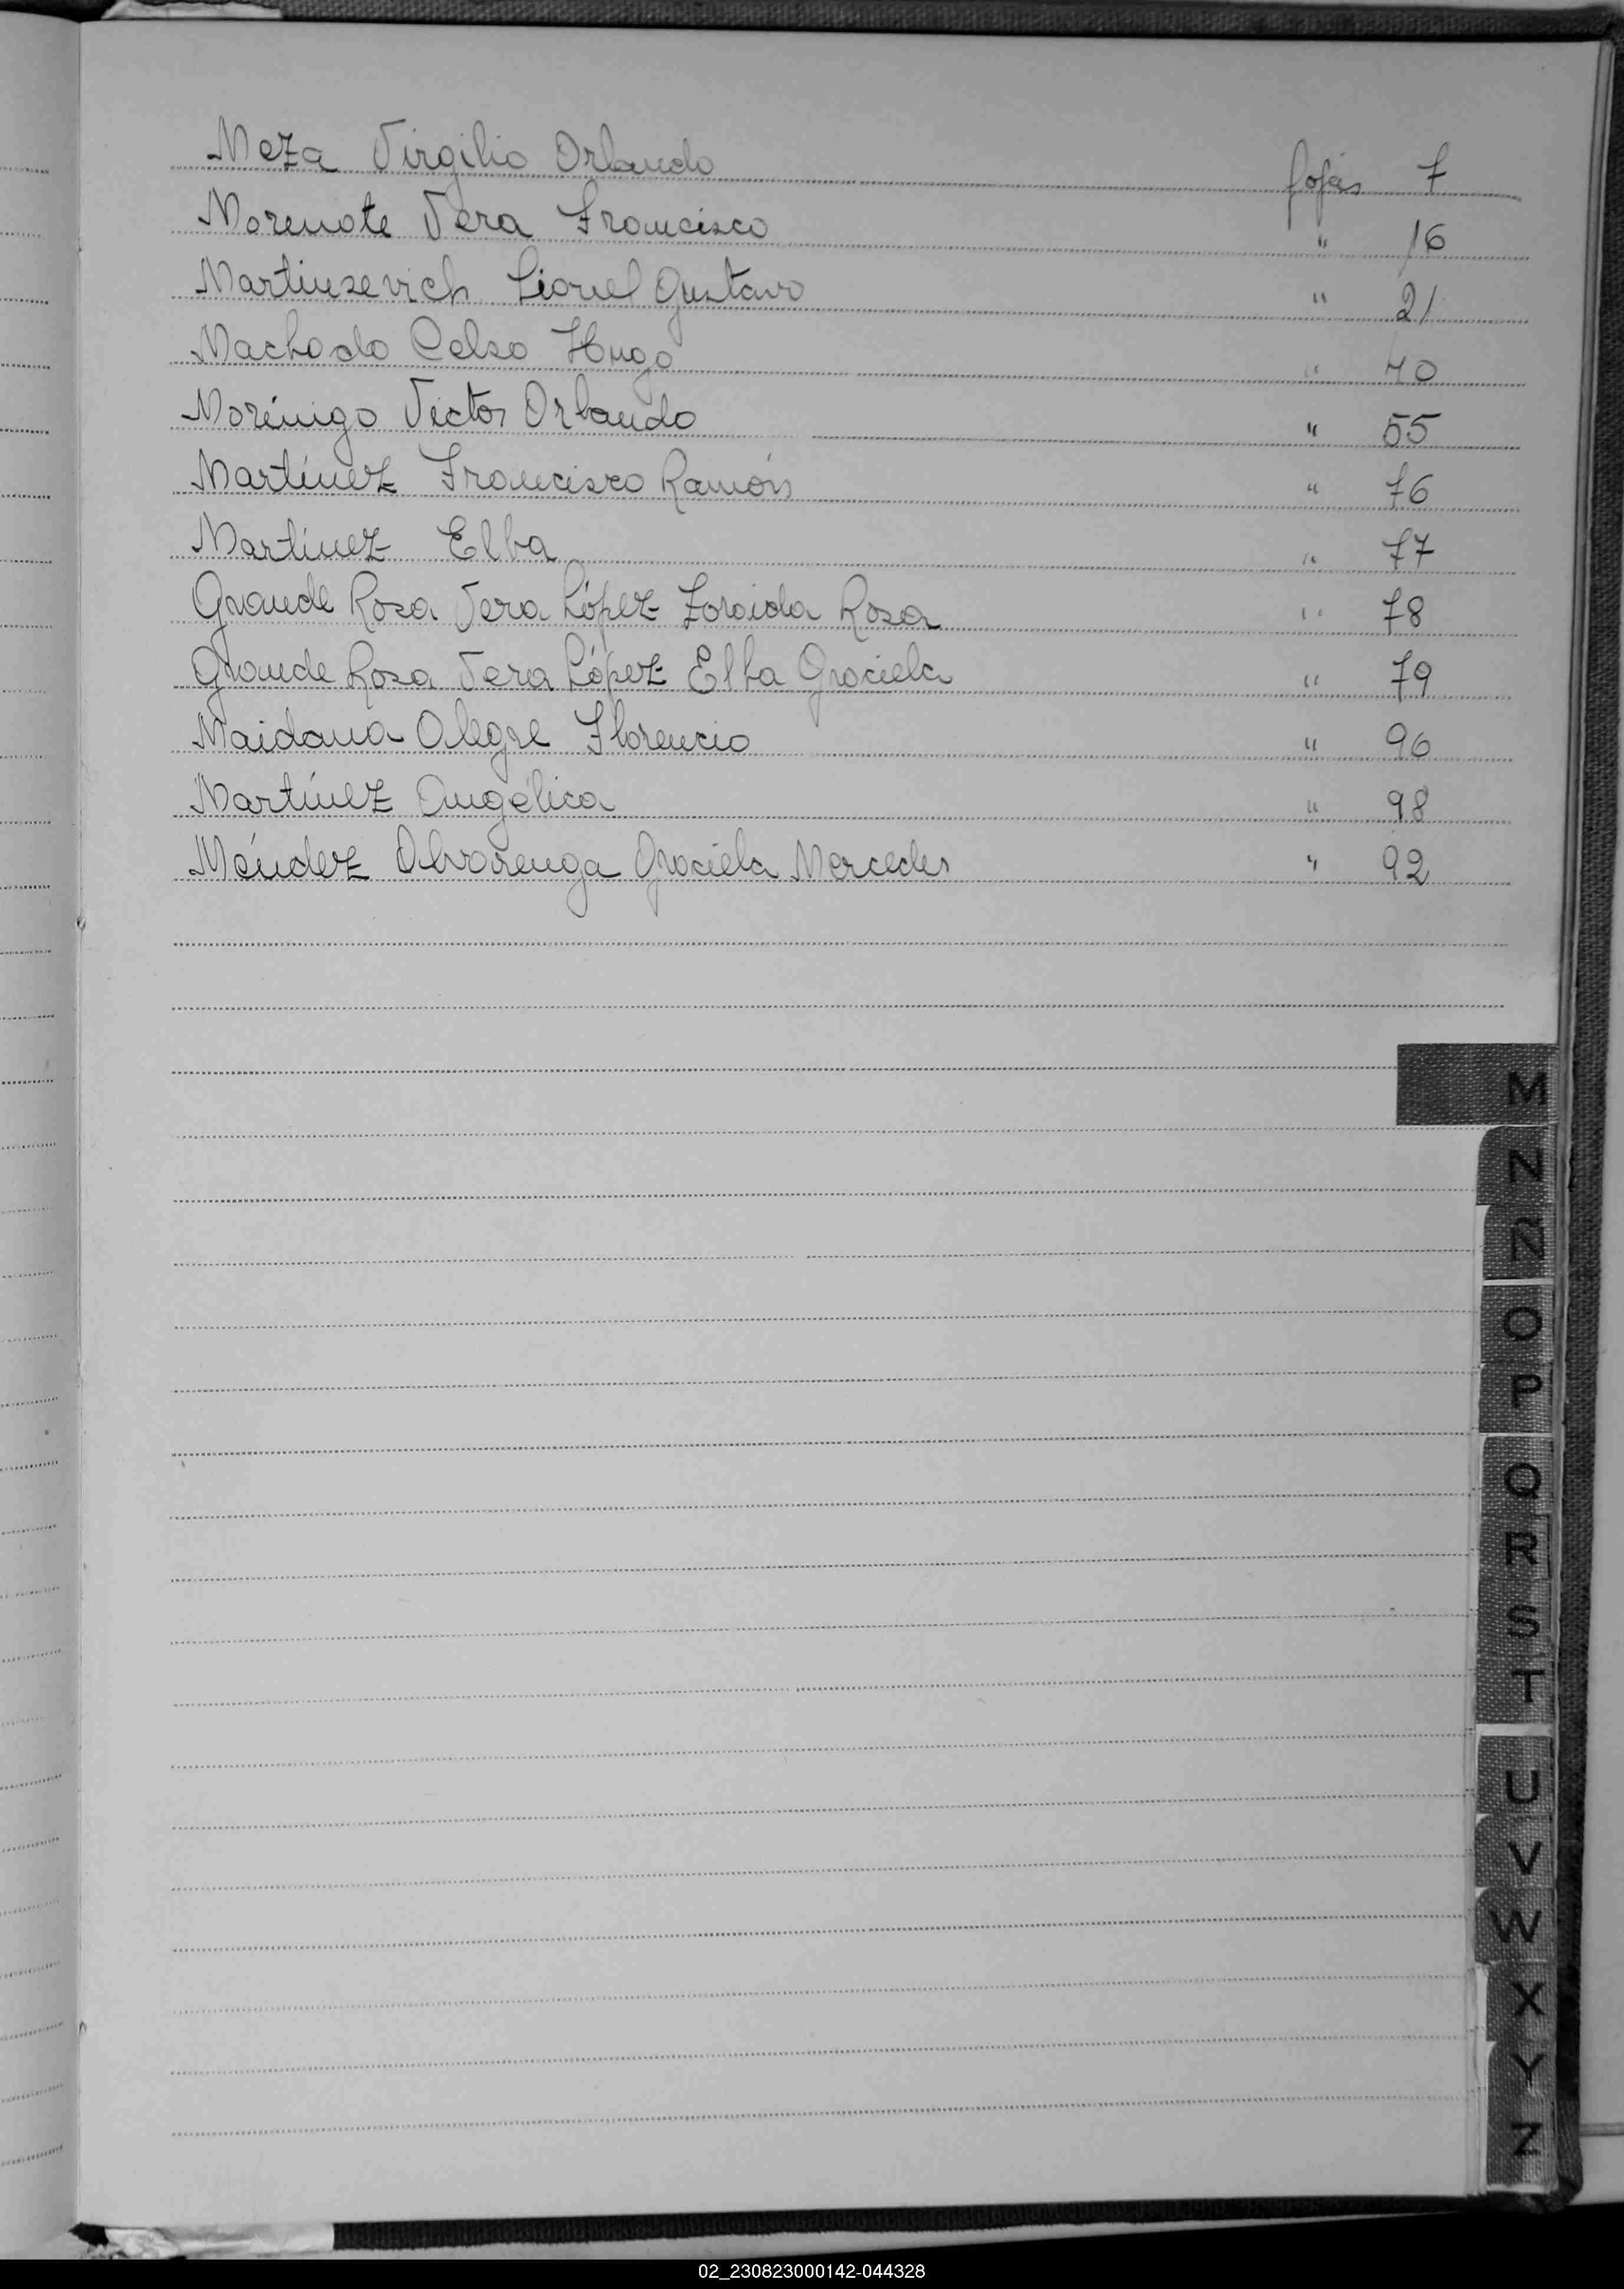 Meza Virgilio Orlando fojas 7
Morenote Vera Francisco " 16
Martiusevich Lionel Gustavo " 21
Machado Celso Hugo " 40
Morínigo Victor Orlando " 55
Martínez Francisco Ramón " 76
Martínez Elba " 77
Grande Rosa Vera López Zoraida Rosa " 78
Grande Rosa Vera López Elba Graciela " 79
Maidana Alegre Florencio " 96
Martínez Angélica " 98
Méndez Alvarenga Graciela Mercedes " 92
M
N
Ñ
O
P
Q
R
S
T
U
V
W
X
Y
Z
02_230823000142-044328